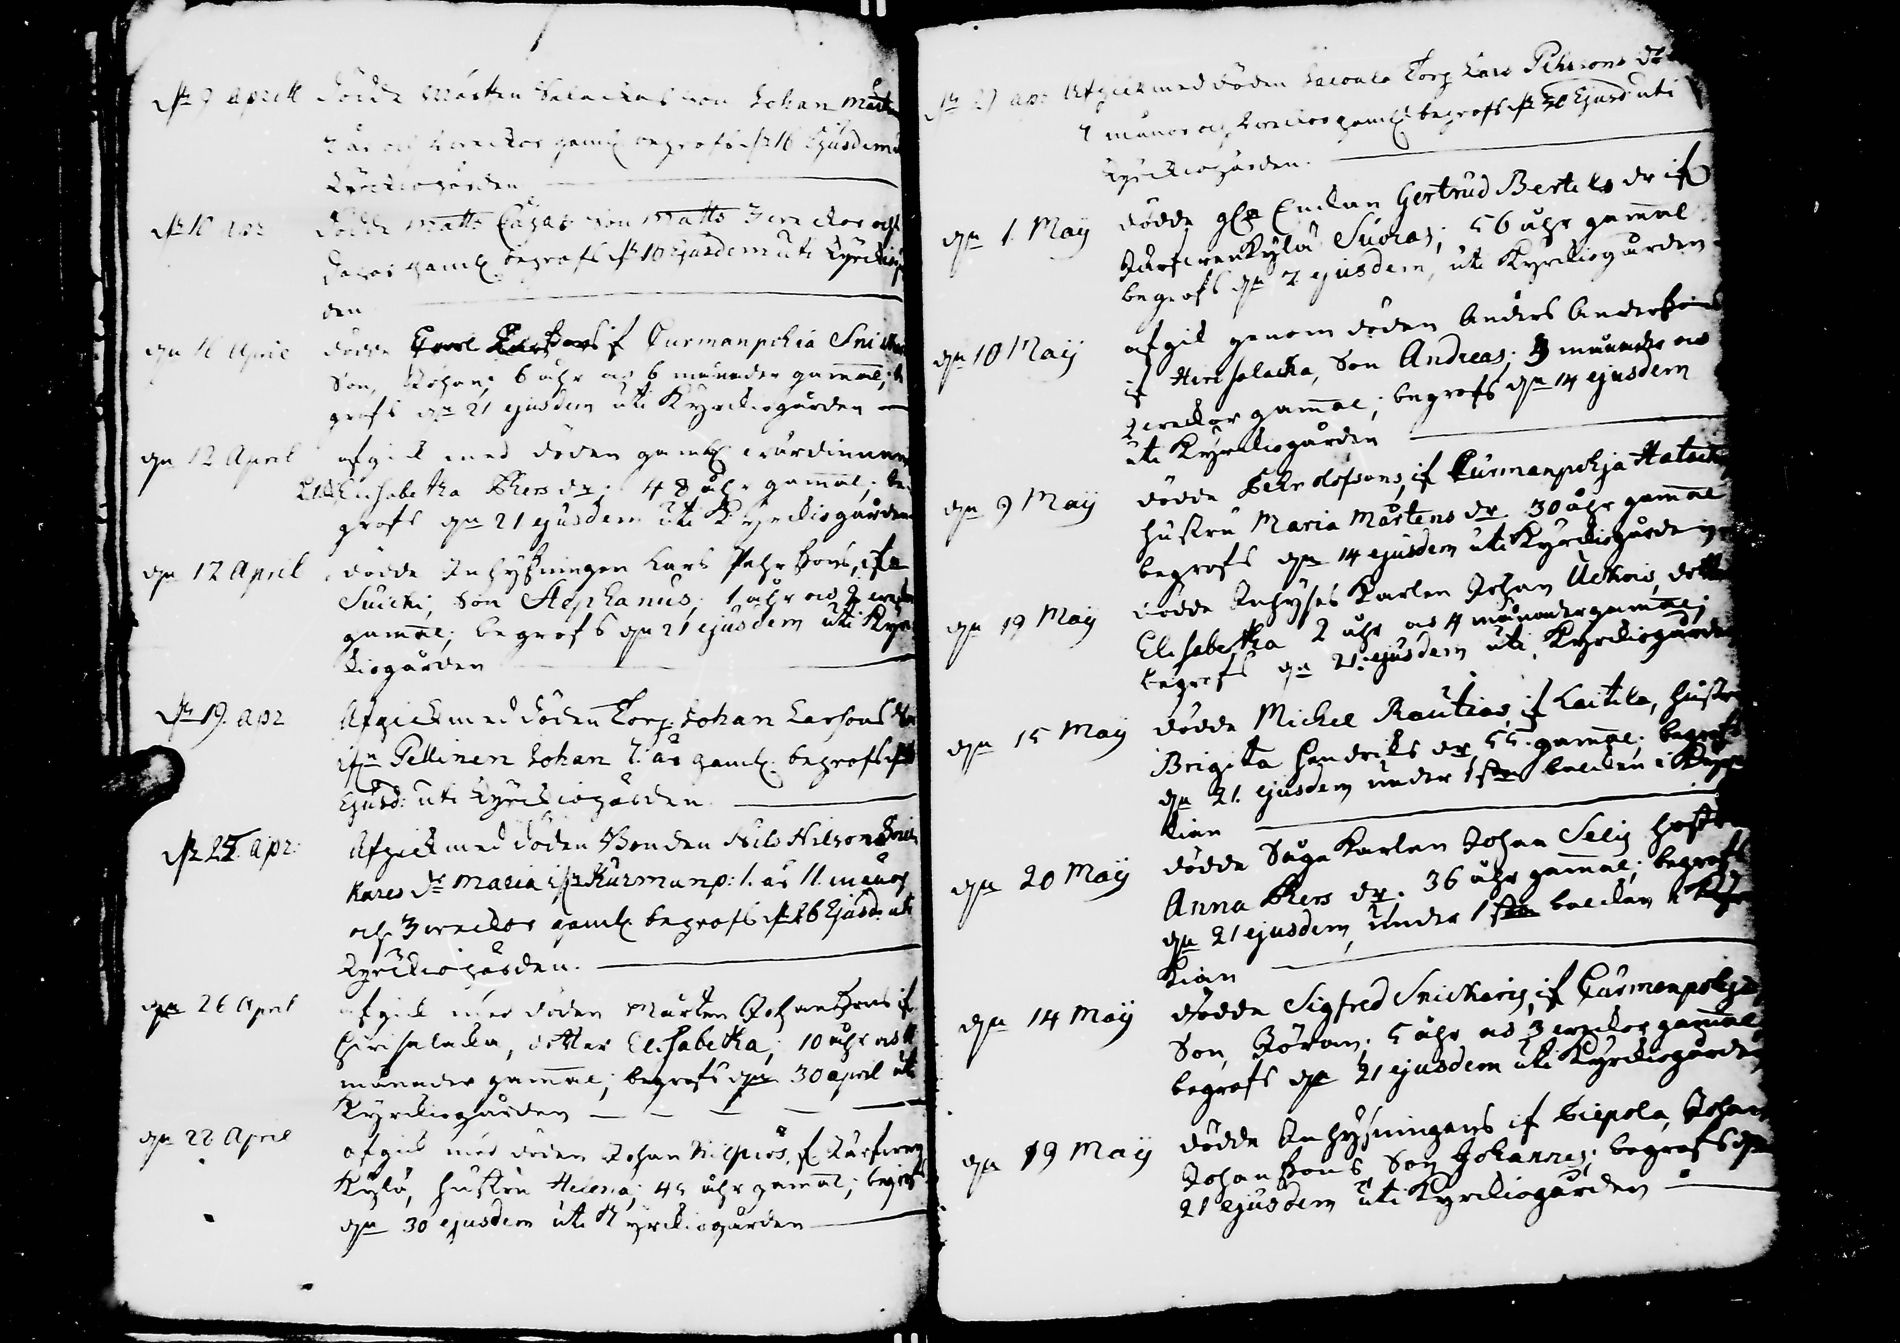 dn 9 aprill dödde Mårten Salackas son Johan Mårt
7 år och weeckor gaml begrofs dn 16 Ejusdem
Kyrckiogården
dn 10 apr dödde Matts son Matts 3 weckor och
dagar gaml begrofs dn 16 Ejusdem uti Kyrckiog
den
dn 16 April dödde if Curmanpohia Snick
Son, Johan; 6 åhr och 6 månader gammal; be
grofs dn 21 ejusdem uti Kyrckiogården
dn 12 April afgick med döden gaml wärdinnan
Elisabetha Pers dr; 48 åhr gammal; be
grofs dn 21 ejusdem uti Kyrckiogården
dn 12 April dödde Inhyssningen Lars Pehrsons, if
Suicki, Son Stephanus; 1 åhr och 2 weckor
gammal; begrofs dn 21 ejusdem uti Kyrc
kiogården
dn 19. apr Afgick med döden Torp. Johan Larsons
ifn Pellinen Johan 7. år gaml. begrofs dn
Ejusd: uti Kyrckiogården.
dn 25. apr: Afgick med döden Bonden Nils Nilson Snic
kares dr Maria ifn Kurmanp: 1. år 11. månar
och 3 weckor gaml begrofs dn 26 Ejusd: uti
Kyrckiogården.
dn 26 April afgick med döden Mårten Johansons if
Hirsalacka, dotter Elisabetha; 10 åhr och
månader gammal; begrofs dn 30 april uti
Kyrckiogården
dn 28 April afgick med döden Johan Kilpiös, if Kärfwen
Kylä, hustru Helena; 45 åhr gammal; begrofs
dn 30 ejusdem uti Kyrckiogården
dn 27 apr Afgick med döden Torp Lars Pehrsons
7 månar och weckor gaml begrofs dn 30 Ejusd uti
Kyrckiogården.
dn 1. May dödde Enckan Gertrud Bertils dr if
Kylä Suoras; 56 åhr gammal
begrofs dn 7 ejusdem, uti Kyrckiogården
dn 10 Maij afgick genom döden Anders Andersons
if Hirsalacka, Son Andreas; 3 månader och
2 weckor gammal; begrofs dn 14 ejusdem
uti Kyrckiogården
dn 9 Maij dödde Pehr olofsons, if Curmanpohja Hatack
hustru Maria Mårtens dr. 30 åhr gammal
begrofs dn 14 ejusdem uti Kyrckiogården
dn 19 Maij dödde Inhyses Karlen Johan Uckois, dotter
Elisabetha 2 åhr och 4 månader gammal;
begrofs dn 21. ejusdem uti Kyrckiogården
dn 15 Maij dödde Michel Rautias, if Laitila, hustr
Brigita Hendriks dr 55. gammal; begrofs
dn 21. ejusdem under 1sta balcken i Kyrc
kian
dn 20 Maij dödde Såga Karlen Johan Selig hustr
Anna Pers dr. 36 åhr gammal; begrofs
dn 21 ejusdem, under 1sta balcken i Kyrc
kian
dn 14 Maij dödde Sigfred Snickaris, if Curmanpohja
Son, Jöran; 5 åhr och 3 weckor gammal
begrofs dn 21 ejusdem uti Kyrckiogården
dn 19 Maij dödde Inhyssningens if Piepola, Johan
Johansons Son Johannes; begrofs dn
21 ejusdem uti Kyrckiogården